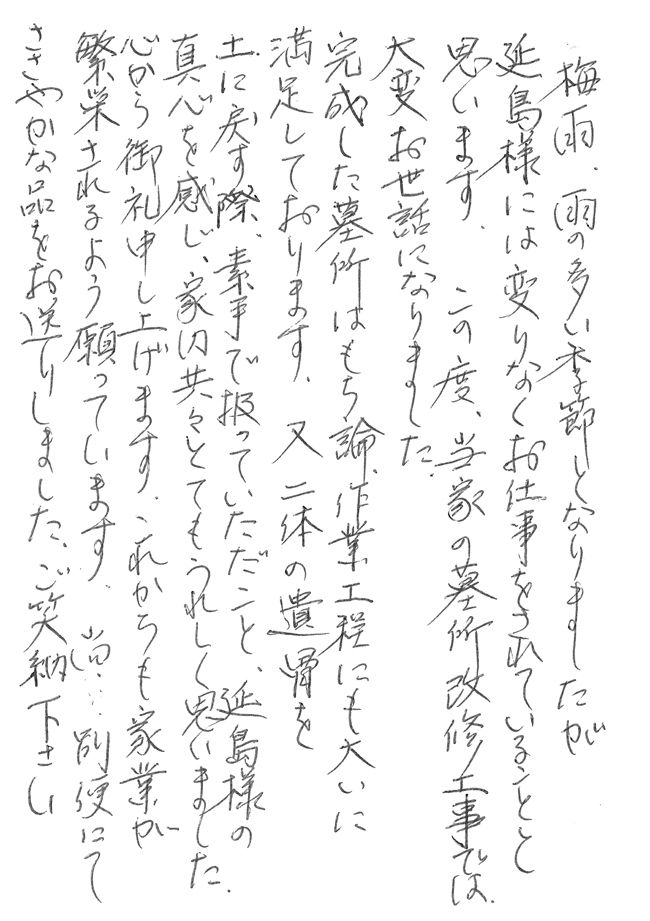 梅雨、雨の多い季節となりましたが
延島様には変りなくお仕事をされていることと
思います。この度、当家の墓所改修工事では、
大変お世話になりました。
完成した墓所はもち論、作業工程にも大いに
満足しております。又二体の遺骨を
土に戻す際、素手で扱っていただこと、延島様の
真心を感じ、家内共々とてもうれしく思いました。
心から御礼申し上げます。これからも家業が
繁栄されるよう願っています。尚、別便にて
ささやかな品をお送りしました、ご笑納下さい